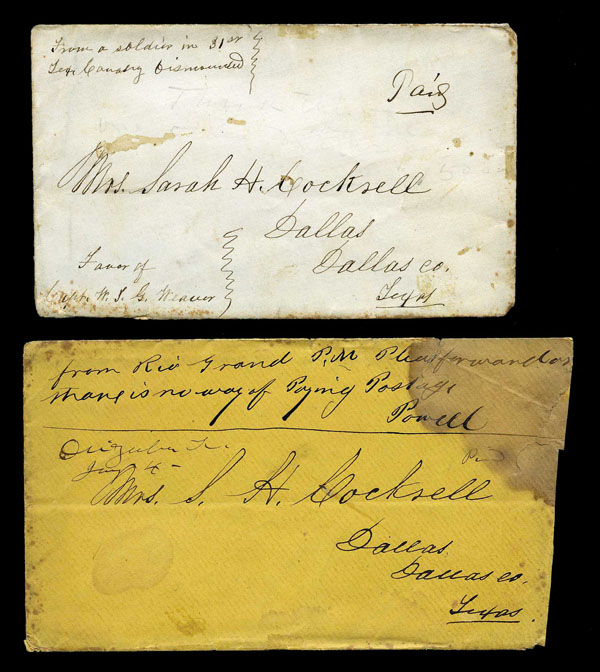 From a soldier in 31st
Tex Cavalry Dismounted
Paid
Mrs. Sarah H. Cockrell
Dallas
Dallas co.
Texas
Favor of
Capt. W. S. G. Weaver
from Rio Grand P.M Pleas forward as
thare is no way of Paying Postage
Powell
Jan 4
Mrs. S. H. Cockrell
Dallas
Dallas co.
Texas.